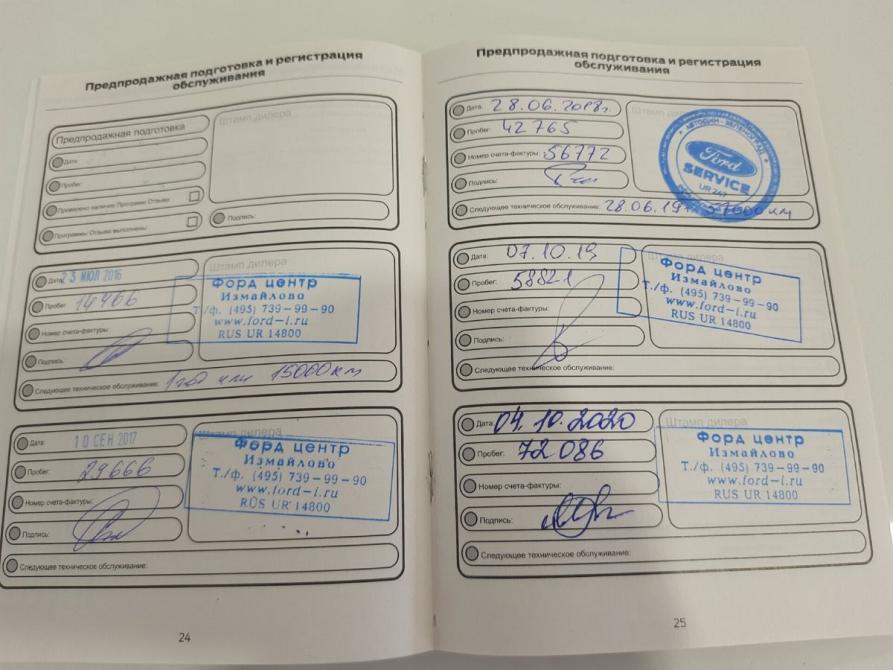 Предпродажная подготовка и регистрация
обслуживания
Предпродажная подготовка
Штамп дилера
Дата:
Пробег:
Проверено наличие Программ Отзыва
Программы Отзыва выполнены
Подпись:
Дата: 23 ИЮЛ 2016
Пробег: 14466
Номер счета-фактуры:
Подпись:
Следующее техническое обслуживание: 1 год или 15000 км
Штамп дилера
Форд центр
Измайлово
Т./ф. (495) 739-99-90
www.ford-i.ru
RUS UR 14800
Дата: 10 СЕН 2017
Пробег: 29666
Номер счета-фактуры:
Подпись:
Следующее техническое обслуживание:
Штамп дилера
Форд центр
Измайлово
Т./ф. (495) 739-99-90
www.ford-i.ru
RUS UR 14800
24
Предпродажная подготовка и регистрация
обслуживания
Дата: 28.06.2018г.
Пробег: 42765
Номер счета-фактуры: 56772
Подпись:
Следующее техническое обслуживание: 28.06.19 57000 км
Штамп дилера
Ford
SERVICE
UR 247
Дата: 07.10.19
Пробег: 58821
Номер счета-фактуры:
Подпись:
Следующее техническое обслуживание:
Штамп дилера
Форд центр
Измайлово
Т./ф. (495) 739-99-90
www.ford-i.ru
RUS UR 14800
Дата: 04.10.2020
Пробег: 72086
Номер счета-фактуры:
Подпись:
Следующее техническое обслуживание:
Штамп дилера
Форд центр
Измайлово
Т./ф. (495) 739-99-90
www.ford-i.ru
RUS UR 14800
25